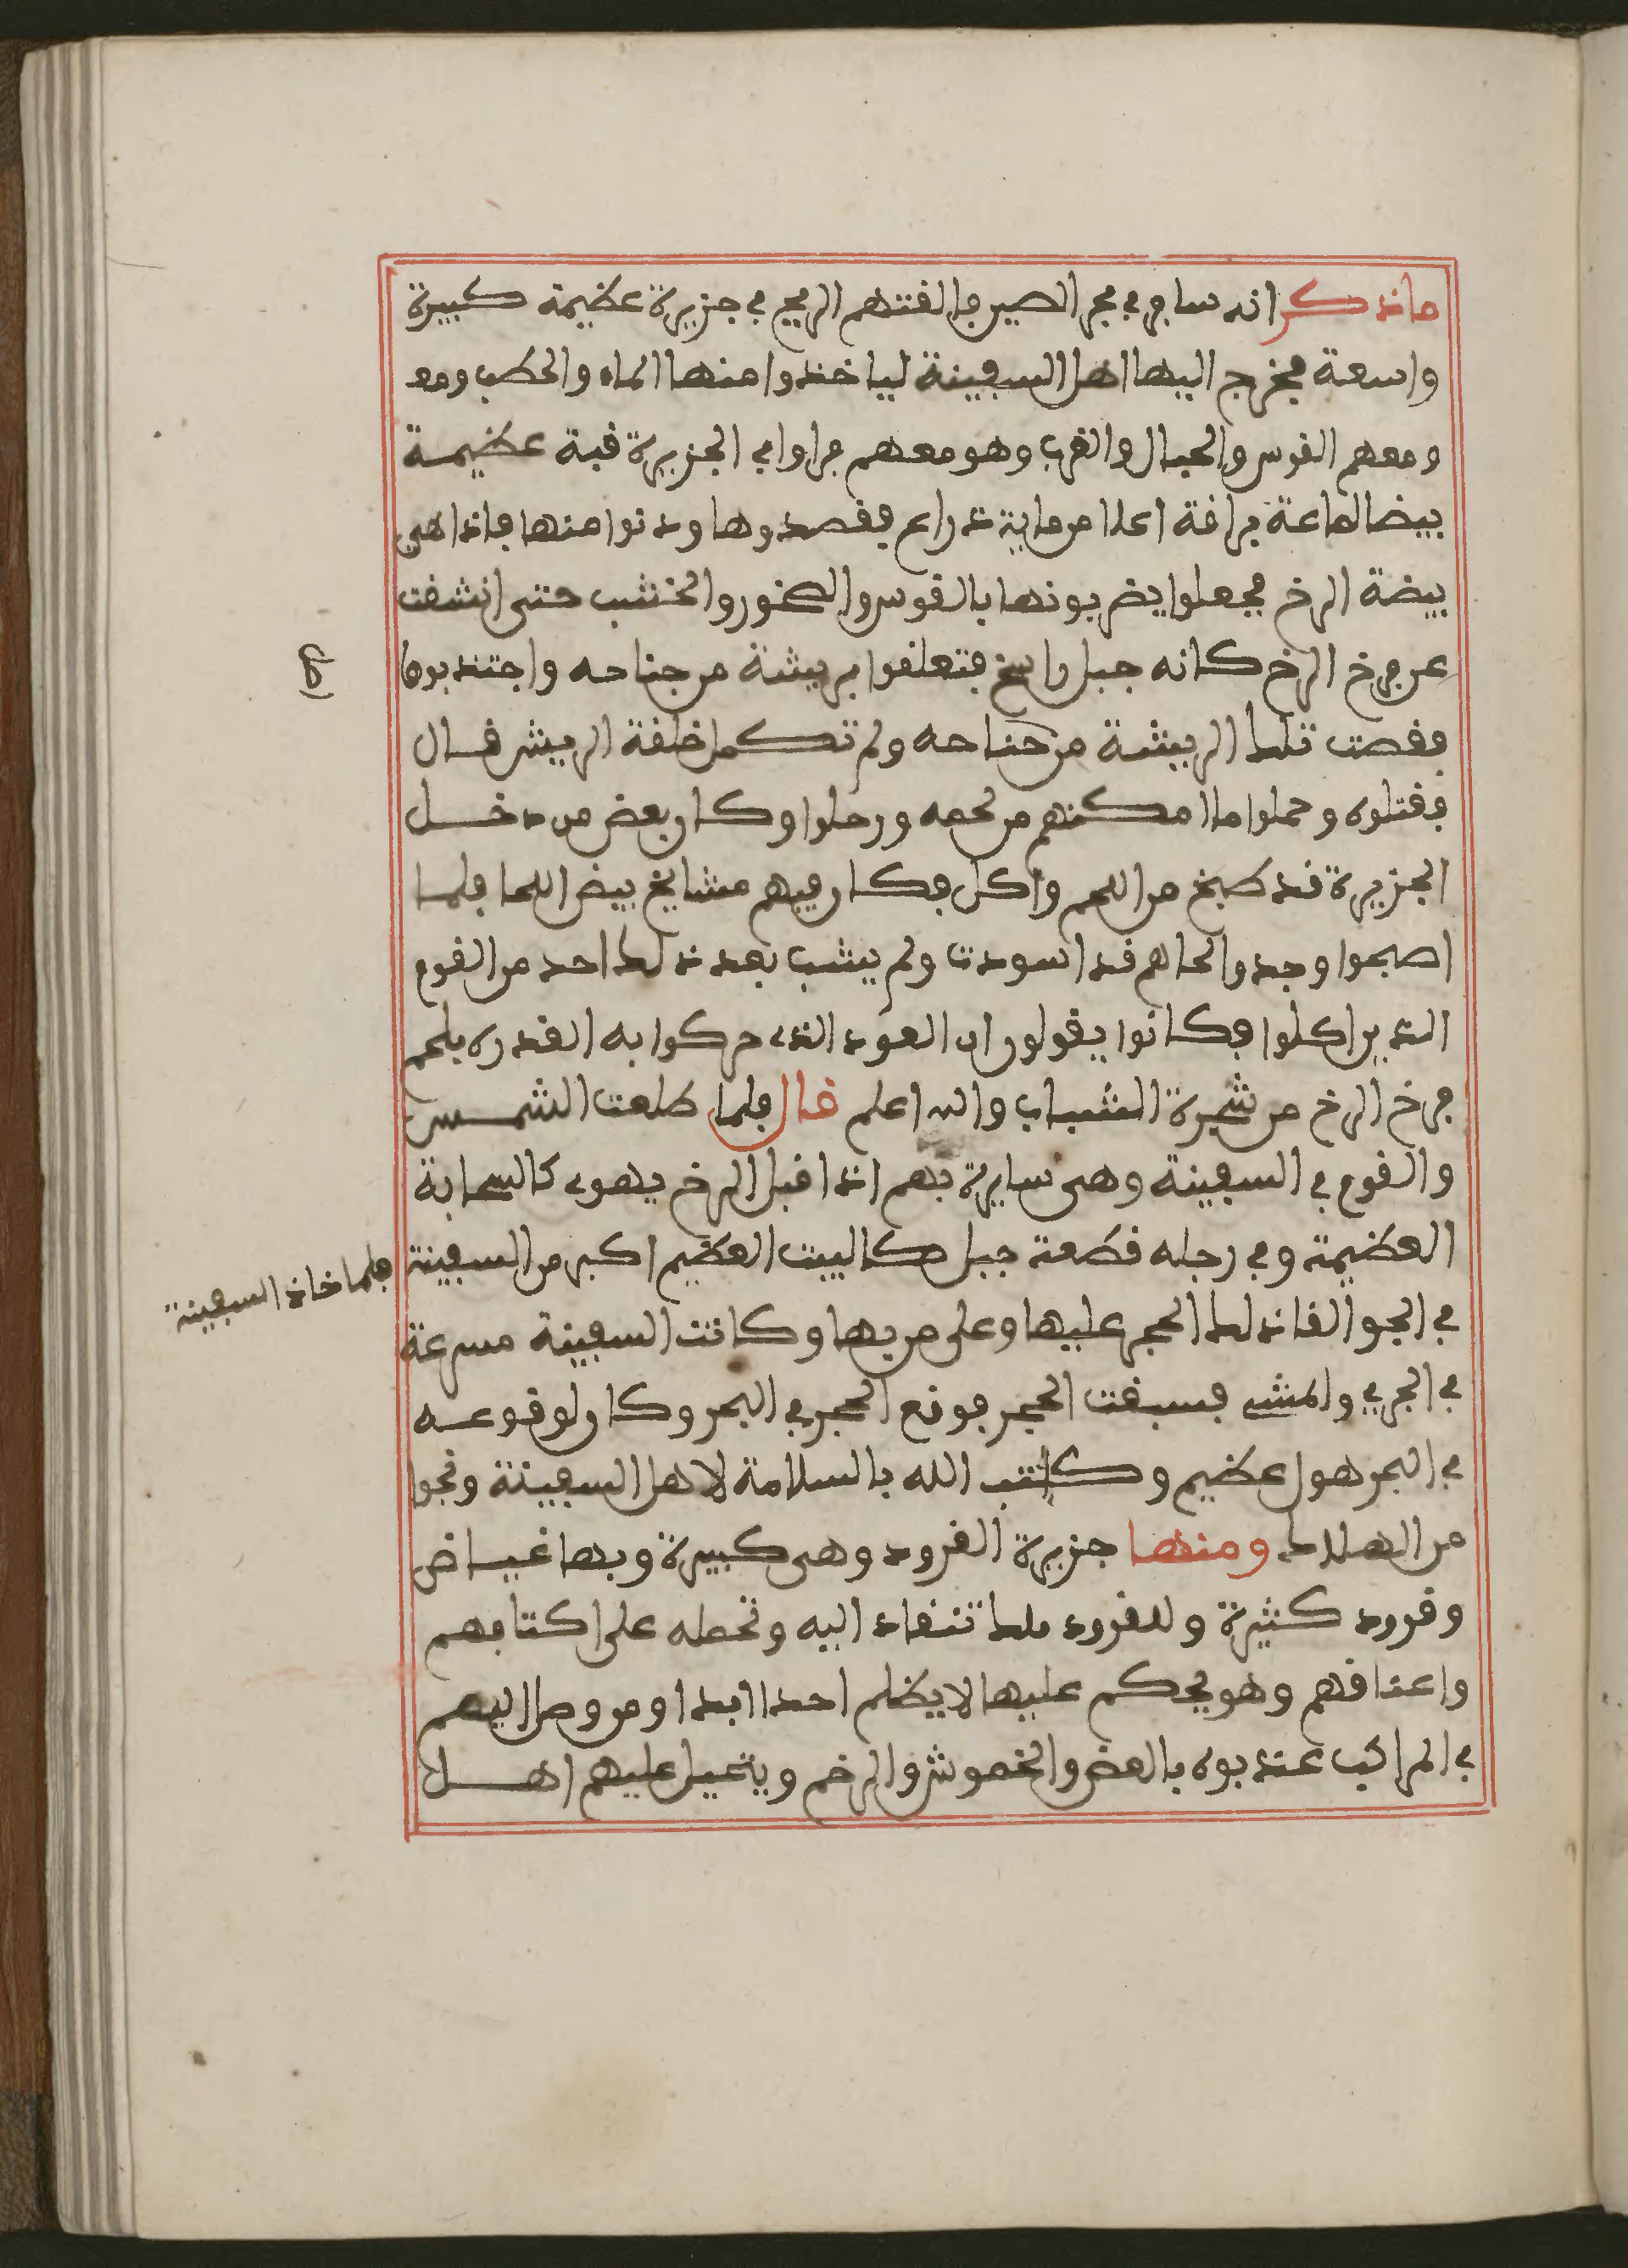 ما ذكر انه سافر في بحر الصين فالقتهم الريح في جزيرة عظيمة كبيرة
واسعة فخرج اليها اهل السفينة لياخذوا منها الماء والحطب ومع
ومعهم الفوس والحبال والقرب وهو معهم فراوا في الجزيرة قبة عظيمة
بيضا لماعة براقة اعلا من ماية ذراع فقصدوها ودنوا منها فاذا هي
بيضة الرخ فجعلوا يضربونها بالفوس والصخور والخشب حتى انشقت
عن فرخ الرخ كانه جبل راسخ فتعلقوا بريشة من جناحه واجتذبوها
فقصت تلك الريشة من جناحه ولم تكمل خلقة الريش قال
فقتلوه وحملوا ما امكنهم من لحمه ورحلوا وكان بعض من دخل
الجزيرة قد طبخ من اللحم واكل فكان فيهم مشايخ بيض اللحا فلما
اصبحوا وجدوا لحاهم قد اسودت ولم يشب بعد ذلك احد من القوم
الذين اكلوا فكانوا يقولون ان العود الذي حركوا به القدرة بلحم
فرخ الرخ من شجرة الشباب والله اعلم قال فلما طلعت الشمس
والقوم في السفينة وهي سايرة بهم اذ اقبل الرخ يهوي كالسحابة
العظيمة وفي رجله قطعة جبل كالبيت العظيم اكبر من السفينة
فلما حاذ السفينة
في الجو القا ذلك الحجر عليها وعلى من بها وكانت السفينة مسرعة
في الجري والمشي فسبقت الحجر فوقع الحجر في البحر وكان لوقوعه
في البحر هول عظيم وكتب الله بالسلامة لاهل السفينة ونجوا
من الهلاك ومنها جزيرة القرود وهي كبيرة وبها غياض
وقرود كثيرة وللقرود ملك تنقاد اليه وتحمله على اكتافهم
واعناقهم وهو يحكم عليها لا يظلم احدا ابدا ومن وصل اليهم
في المراكب عذبوه بالعض والخموش والرجم ويتحيل عليهم اهل